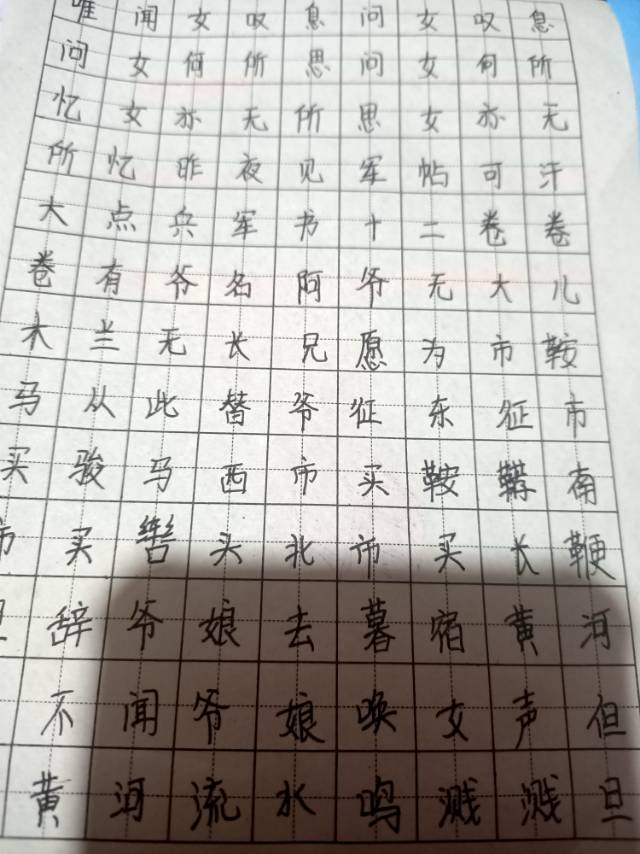 唯闻女叹息问女叹息
问女何所思问女何所
忆女亦无所思女亦无
所忆昨夜见军帖可汗
大点兵军书十二卷卷
卷有爷名阿爷无大儿
木兰无长兄愿为市鞍
马从此替爷征东征市
买骏马西市买鞍鞯南
市买辔头北市买长鞭
旦辞爷娘去暮宿黄河
不闻爷娘唤女声但
黄河流水鸣溅溅旦